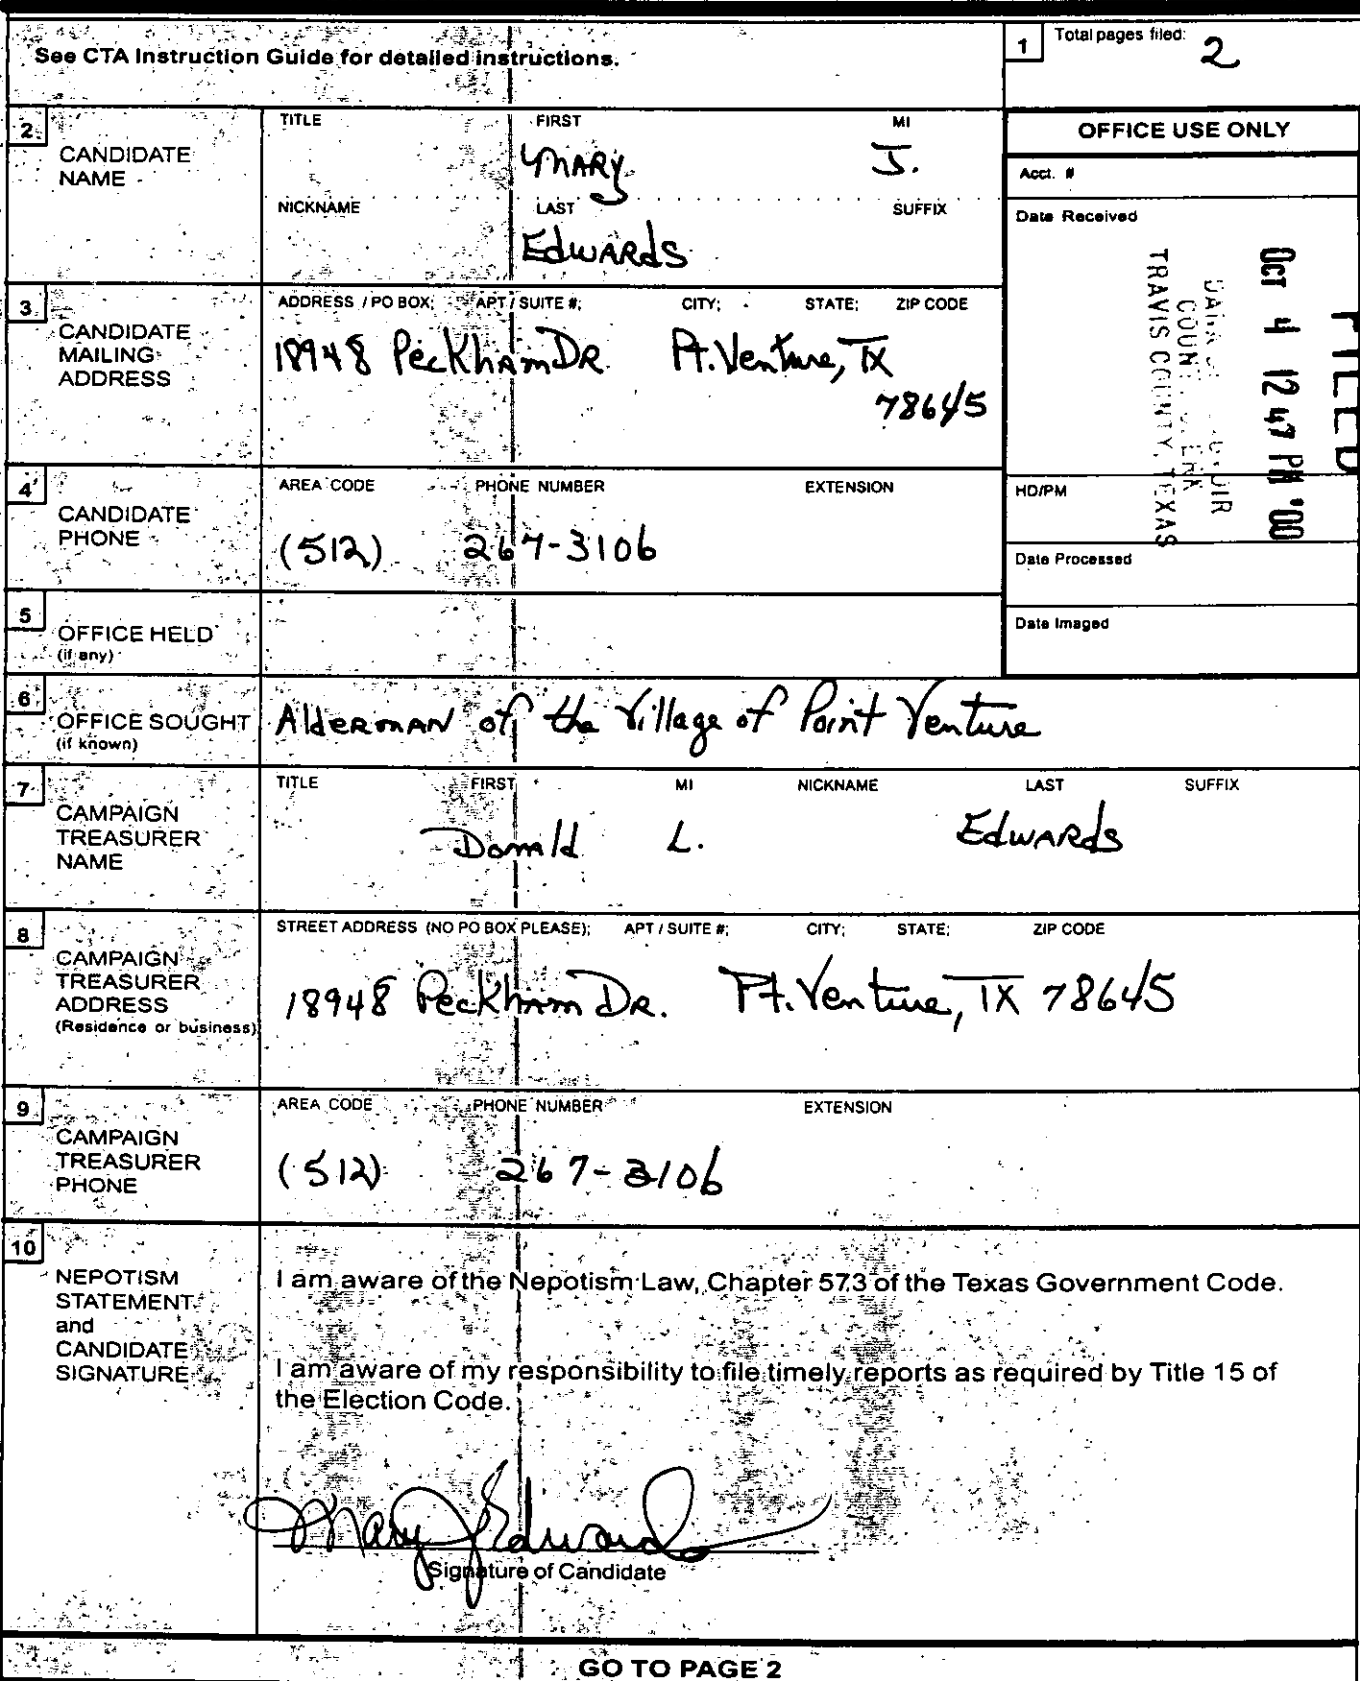 See CTA Instruction Guide for detailed instructions.
1 Total pages filed: 2
2 CANDIDATE NAME
TITLE FIRST MI
MARY J.
NICKNAME LAST SUFFIX
EdwARdS
OFFICE USE ONLY
Acct. #
Date Received
FILED
OCT 4 12 47 PM '00
COUNTY CLERK
TRAVIS COUNTY, TEXAS
HD/PM
Date Processed
Date Imaged
3 CANDIDATE MAILING ADDRESS
ADDRESS / PO BOX; APT / SUITE #; CITY; STATE; ZIP CODE
18948 Peckham DR. Pt. Venture, TX
78645
4 CANDIDATE PHONE
AREA CODE PHONE NUMBER EXTENSION
(512) 267-3106
5 OFFICE HELD
(if any)
6 OFFICE SOUGHT
(if known)
Alderman of the Village of Point Venture
7 CAMPAIGN TREASURER NAME
TITLE FIRST MI NICKNAME LAST SUFFIX
Donald L. EdwARds
8 CAMPAIGN TREASURER ADDRESS
(Residence or business)
STREET ADDRESS (NO PO BOX PLEASE); APT / SUITE #; CITY; STATE; ZIP CODE
18948 Peckham DR. Pt. Venture, TX 78645
9 CAMPAIGN TREASURER PHONE
AREA CODE PHONE NUMBER EXTENSION
(512) 267-3106
10 NEPOTISM STATEMENT and CANDIDATE SIGNATURE
I am aware of the Nepotism Law, Chapter 573 of the Texas Government Code.
I am aware of my responsibility to file timely reports as required by Title 15 of
the Election Code.
Mary J Edwards
Signature of Candidate
GO TO PAGE 2